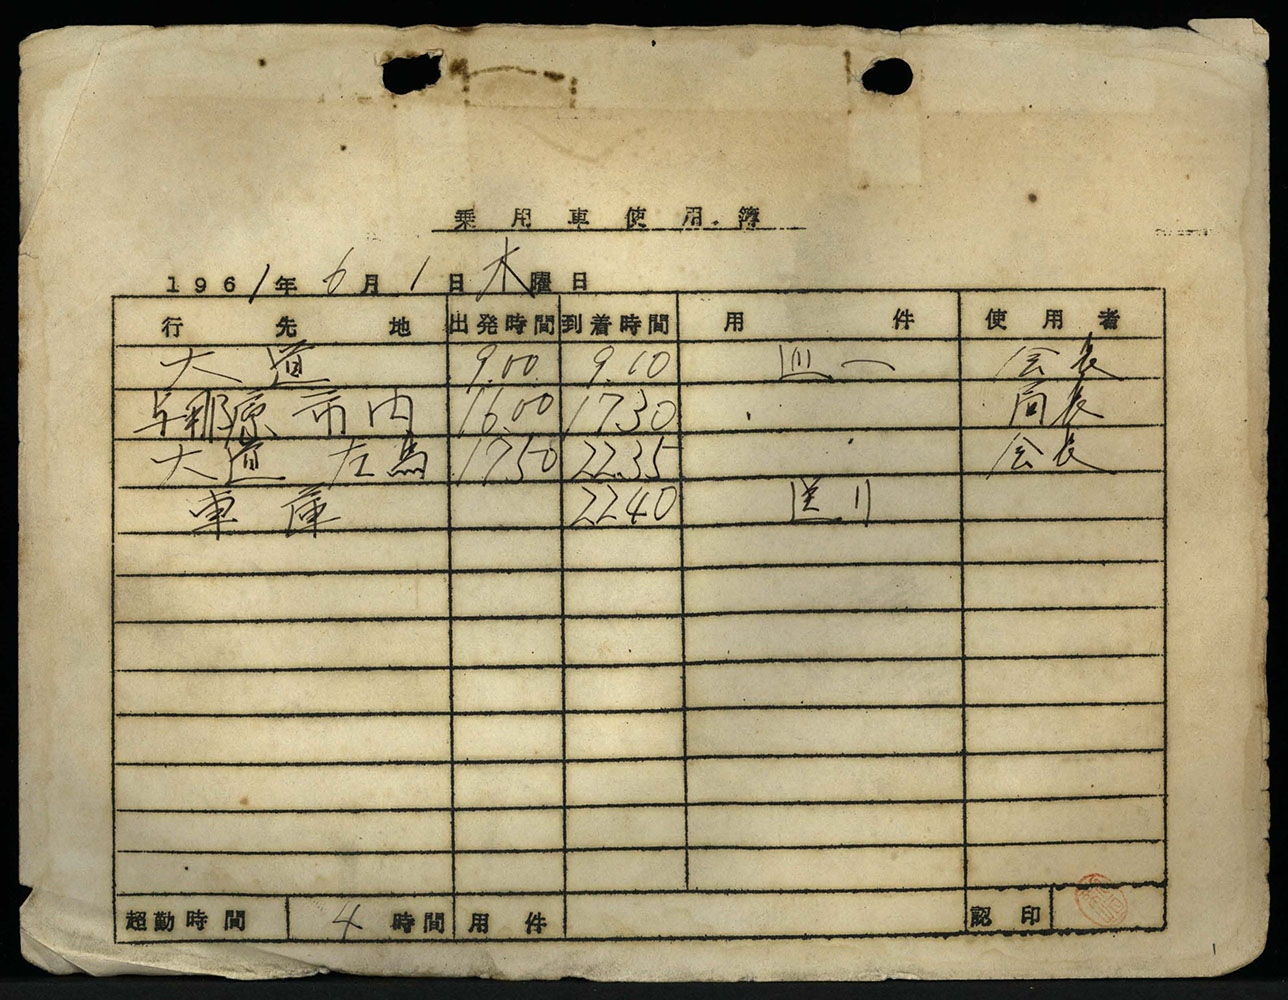 乗用車使用簿
1961年 6月 1日 木曜日
行先地 出発時間 到着時間 用件 使用者
大道 9.00 9.10 会長
与那原 市内 16.00 17.30 局長
大道 左馬 17.50 22.35 会長
車庫 22.40
超勤時間 4 時間 用件 認印